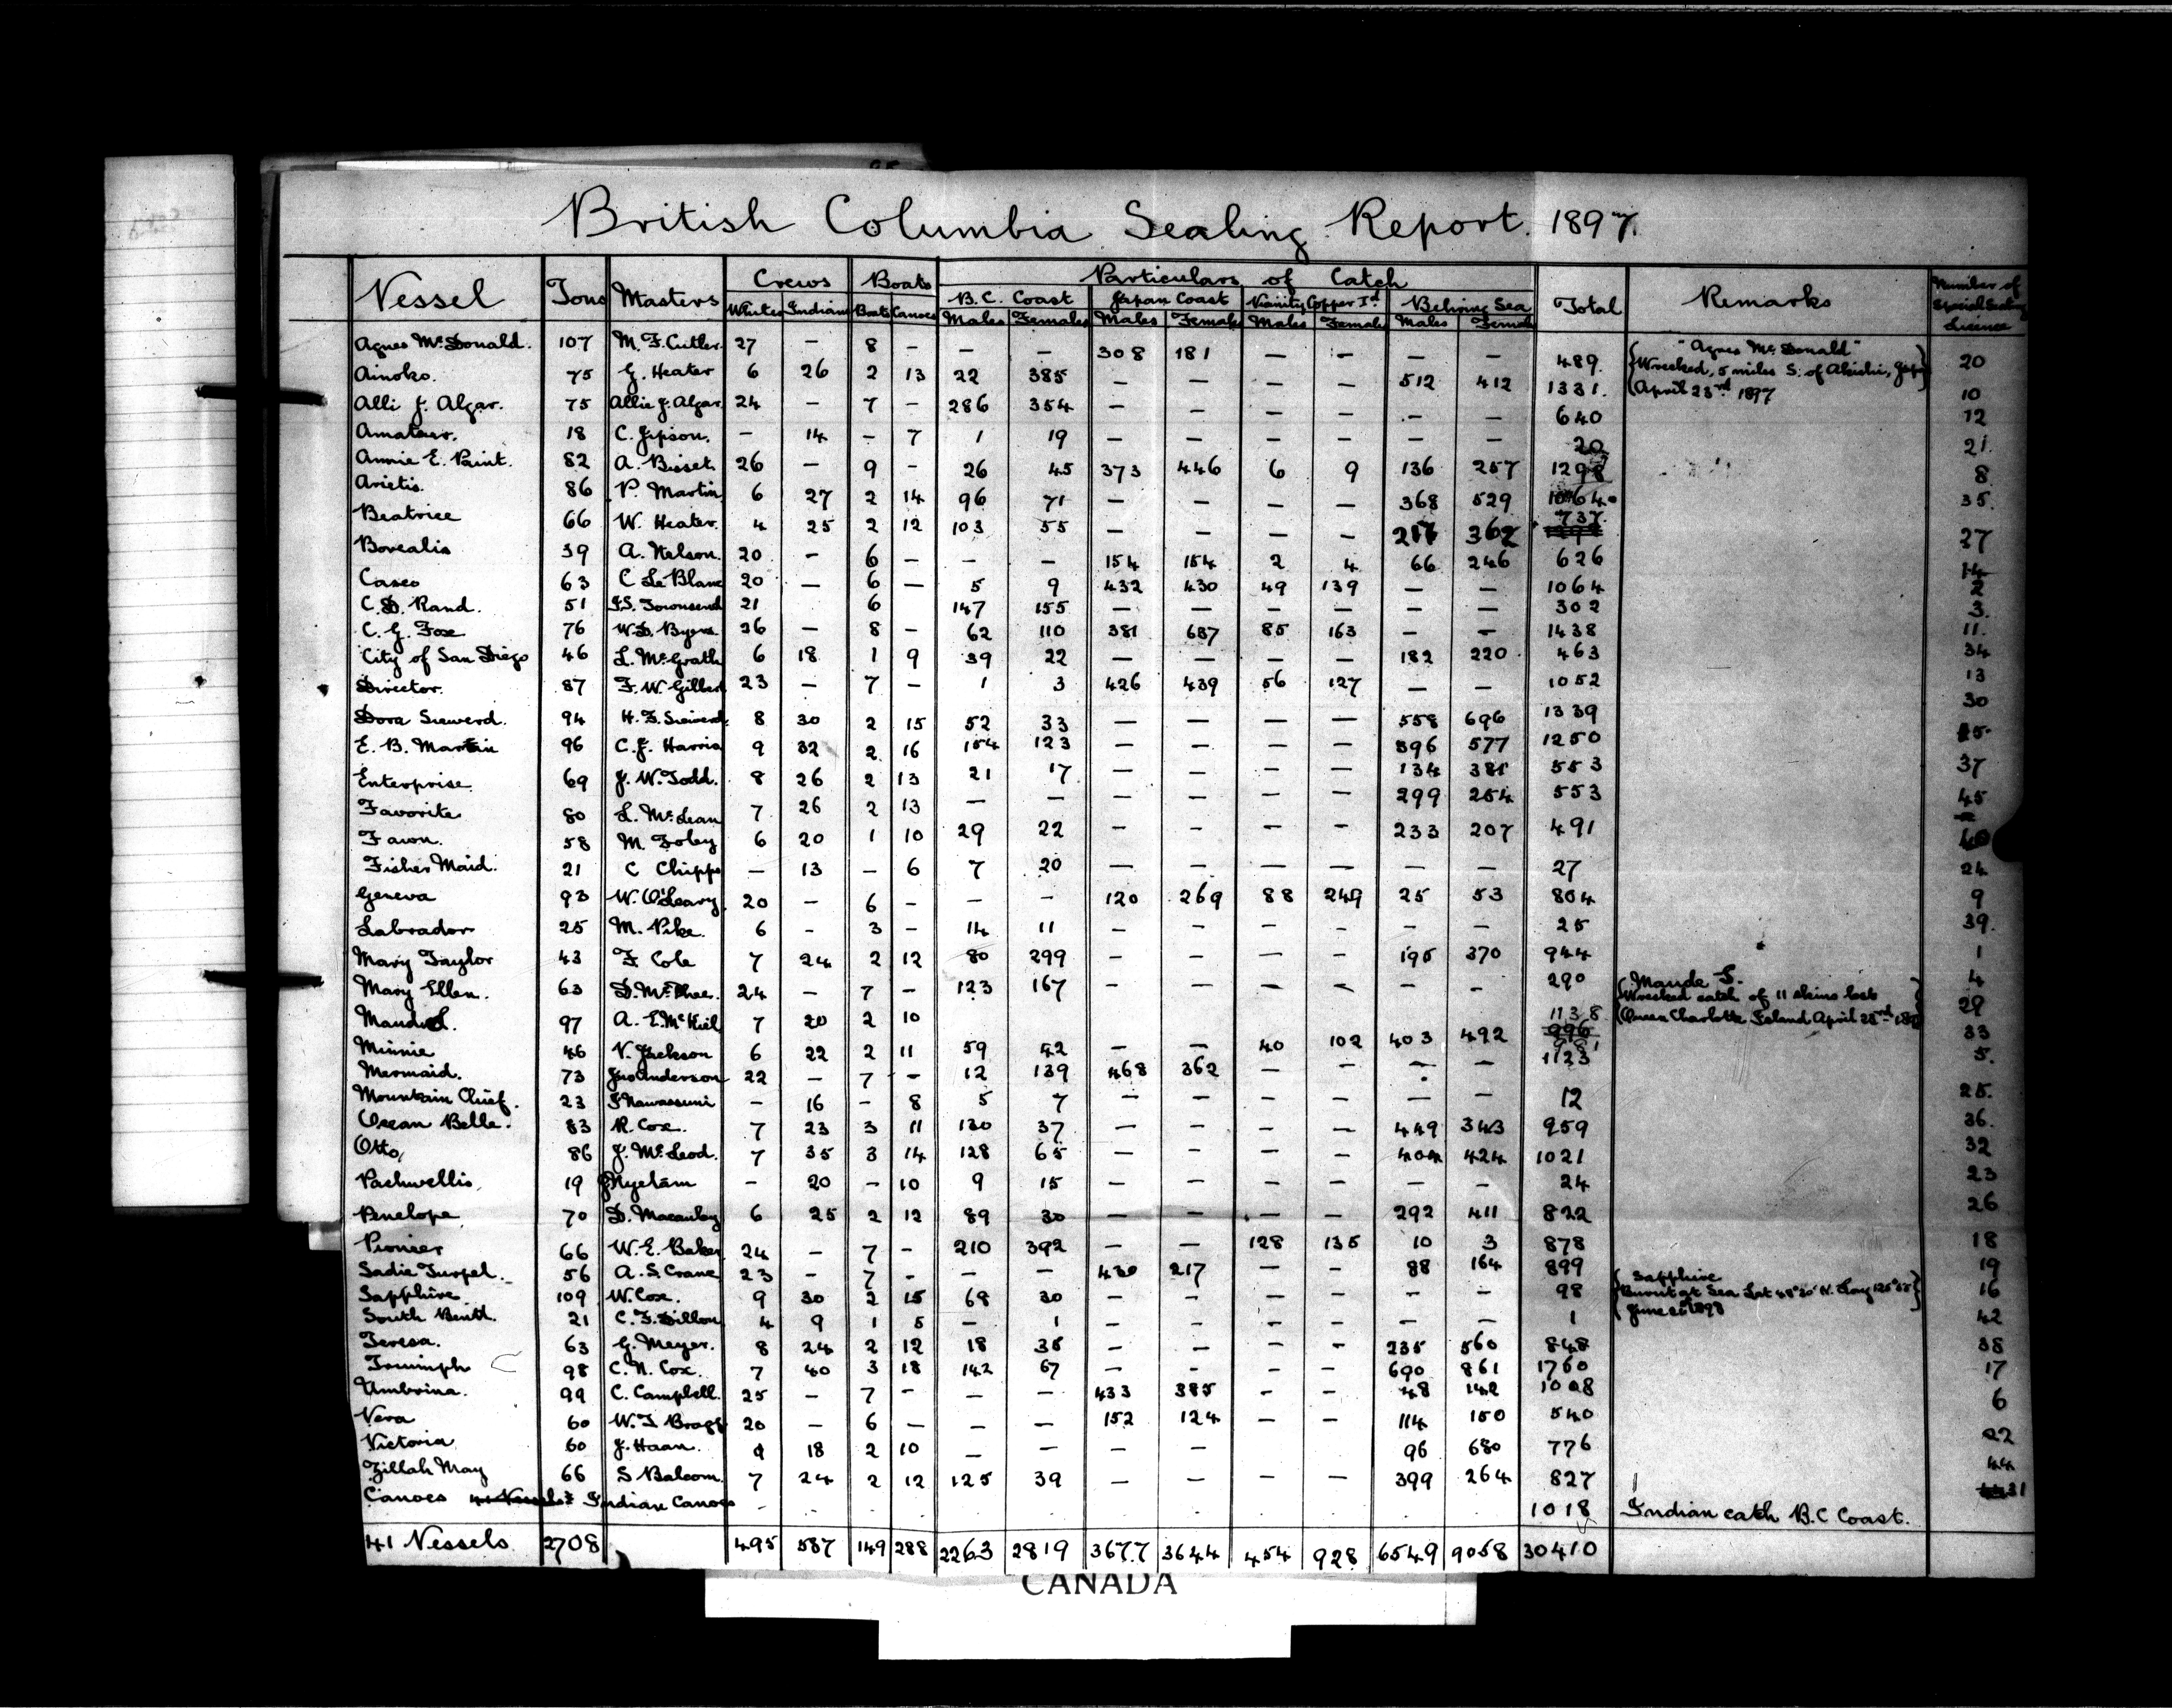 British Columbia Sealing Report. 1897.
Vessel Tons Masters Crews Boats Particulars of Catch Total Remarks Number of Special Sealing Licence
B.C. Coast Japan Coast Vicinity Copper Id. Behring Sea
Whites Indians Boats Canoes Males Females Males Females Males Females Males Females
Agnes McDonald. 107 M. F. Cutler. 27 – 8 – – – 308 181 – – – – 489. "Agnes McDonald" 20
Wrecked, 5 miles S. of Akishi, Japan
April 23rd 1897
Ainoko. 75 G. Heater 6 26 2 13 22 385 – – – – 512 412 1331. 10
Alli J. Algar. 75 Allie J. Algar. 24 – 7 – 286 354 – – – – – – 640 12
Amateur. 18 C. Jipson. – 14 – 7 1 19 – – – – – – 20 21
Annie E. Paint. 82 A. Bisset 26 – 9 – 26 45 373 446 6 9 136 257 1298 8
Arietis. 86 P. Martin 6 27 2 14 96 71 – – – – 368 529 1064 35.
Beatrice 66 W. Heater. 4 25 2 12 103 55 – – – – 217 362 737. 27
Borealis 39 A. Nelson. 20 – 6 – – – 154 154 2 4 66 246 626 14
Casco 63 C Le Blanc 20 – 6 – 5 9 432 430 49 139 – – 1064 2
C. D. Rand. 51 J.S. Townsend 21 6 147 155 – – – – – – 302 3.
C. G. Fox 76 W.D. Byers 26 – 8 – 62 110 381 637 85 163 – – 1438 11.
City of San Diego 46 L. McGrath 6 18 1 9 39 22 – – – – 182 220 463 34
Director. 87 F. W. Gilbert 23 – 7 – 1 3 426 439 56 127 – – 1052 13
Dora Sieward. 94 H. F. Sieward. 8 30 2 15 52 33 – – – – 558 696 1339 30
E. B. Marvin 96 C. J. Harris 9 32 2 16 154 123 – – – – 396 577 1250 15
Enterprise. 69 J. W. Todd. 8 26 2 13 21 17 – – – – 134 381 553 37
Favorite 80 L. McLean 7 26 2 13 – – – – – – 299 254 553 45
Fawn. 58 M. Foley 6 20 1 10 29 22 – – – – 233 207 491 40
Fisher Maid. 21 C Chipps – 13 – 6 7 20 – – – – – – 27 24
Geneva 93 W. O'Leary. 20 – 6 – – – 120 269 88 249 25 53 804 9
Labrador 25 M. Pike. 6 – 3 – 14 11 – – – – – – 25 39.
Mary Taylor 43 F. Cole 7 24 2 12 80 299 – – – – 195 370 944 1
Mary Ellen. 63 D. McPhee. 24 – 7 – 123 167 – – – – – – 290 4
Maude S.
Wrecked catch of 11 skins lost
Queen Charlotte Island April 23rd 1897
Maud S. 97 A. E. McKiel 7 20 2 10 29
Minnie 46 V. Jackson 6 22 2 11 59 42 – – 40 102 403 492 1138 33
Mermaid. 73 Jno Anderson 22 – 7 – 12 139 468 362 – – – – 1123 5.
Mountain Chief. 23 J Nawassum – 16 – 8 5 7 – – – – – – 12 25.
Ocean Belle. 83 R. Cox. 7 23 3 11 130 37 – – – – 449 343 959 36.
Otto, 86 J. McLeod. 7 35 3 14 128 65 – – – – 404 424 1021 32
Pachwellis, 19 – 20 – 10 9 15 – – – – – – 24 23
Penelope 70 D. Macauley 6 25 2 12 89 30 – – – – 292 411 822 26
Pioneer 66 W. E. Baker 24 – 7 – 210 392 – – 128 135 10 3 878 18
Sadie Turpel. 56 A. S. Crane 23 – 7 – – – 430 217 – – 88 164 899 19
Sapphire 109 W. Cox. 9 30 2 15 68 30 – – – – – – 98 16
Sapphire
Burnt at Sea Lat 48°20' N. Long
June
South Bend. 21 C. F. Dillon 4 9 1 5 – 1 – – – – – – 1 42
Teresa. 63 G. Meyer. 8 24 2 12 18 35 – – – – 235 560 848 38
Triumph 98 C. N. Cox. 7 40 3 18 142 67 – – – – 690 861 1760 17
Umbrina. 99 C. Campbell. 25 – 7 – – – 433 385 – – 48 142 1008 6
Vera 60 W. T Bragg 20 – 6 – – – 152 124 – – 114 150 540 22
Victoria 60 J. Haan. 9 18 2 10 – – – – 96 680 776 44
Zillah May 66 S Balcom. 7 24 2 12 125 39 – – – – 399 264 827 31
Canoes Indian Canoes 1018 Indian catch B.C Coast.
41 Vessels 2708 495 587 149 288 2263 2819 3677 3644 454 928 6549 9058 30410
CANADA